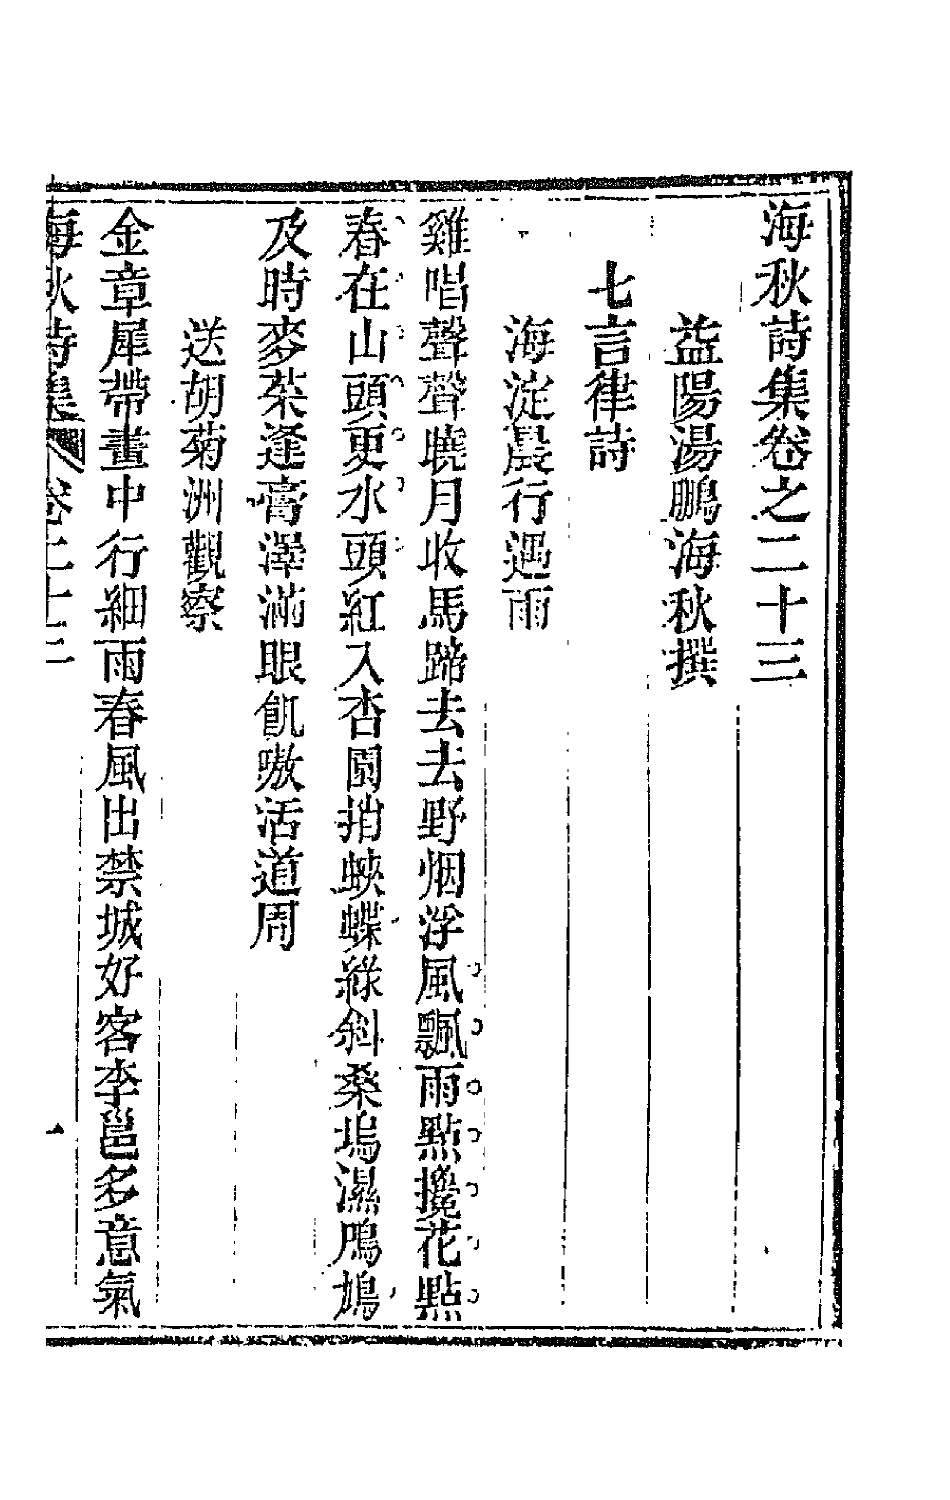 海秋詩集卷之二十三
益陽湯鵬海秋撰
七言律詩
海淀晨行遇雨
雞唱聲聲曉月收馬蹄去去野烟浮風飄雨點攙花點
春在山頭更水頭紅入杏園捎蛺蝶綠斜桑塢濕鳲鳩
及時麥菜逢膏澤滿眼飢嗷活道周
送胡菊洲觀察
金章犀帶畫中行細雨春風出禁城好客李邕多意氣
海秋詩集 卷二十三 一